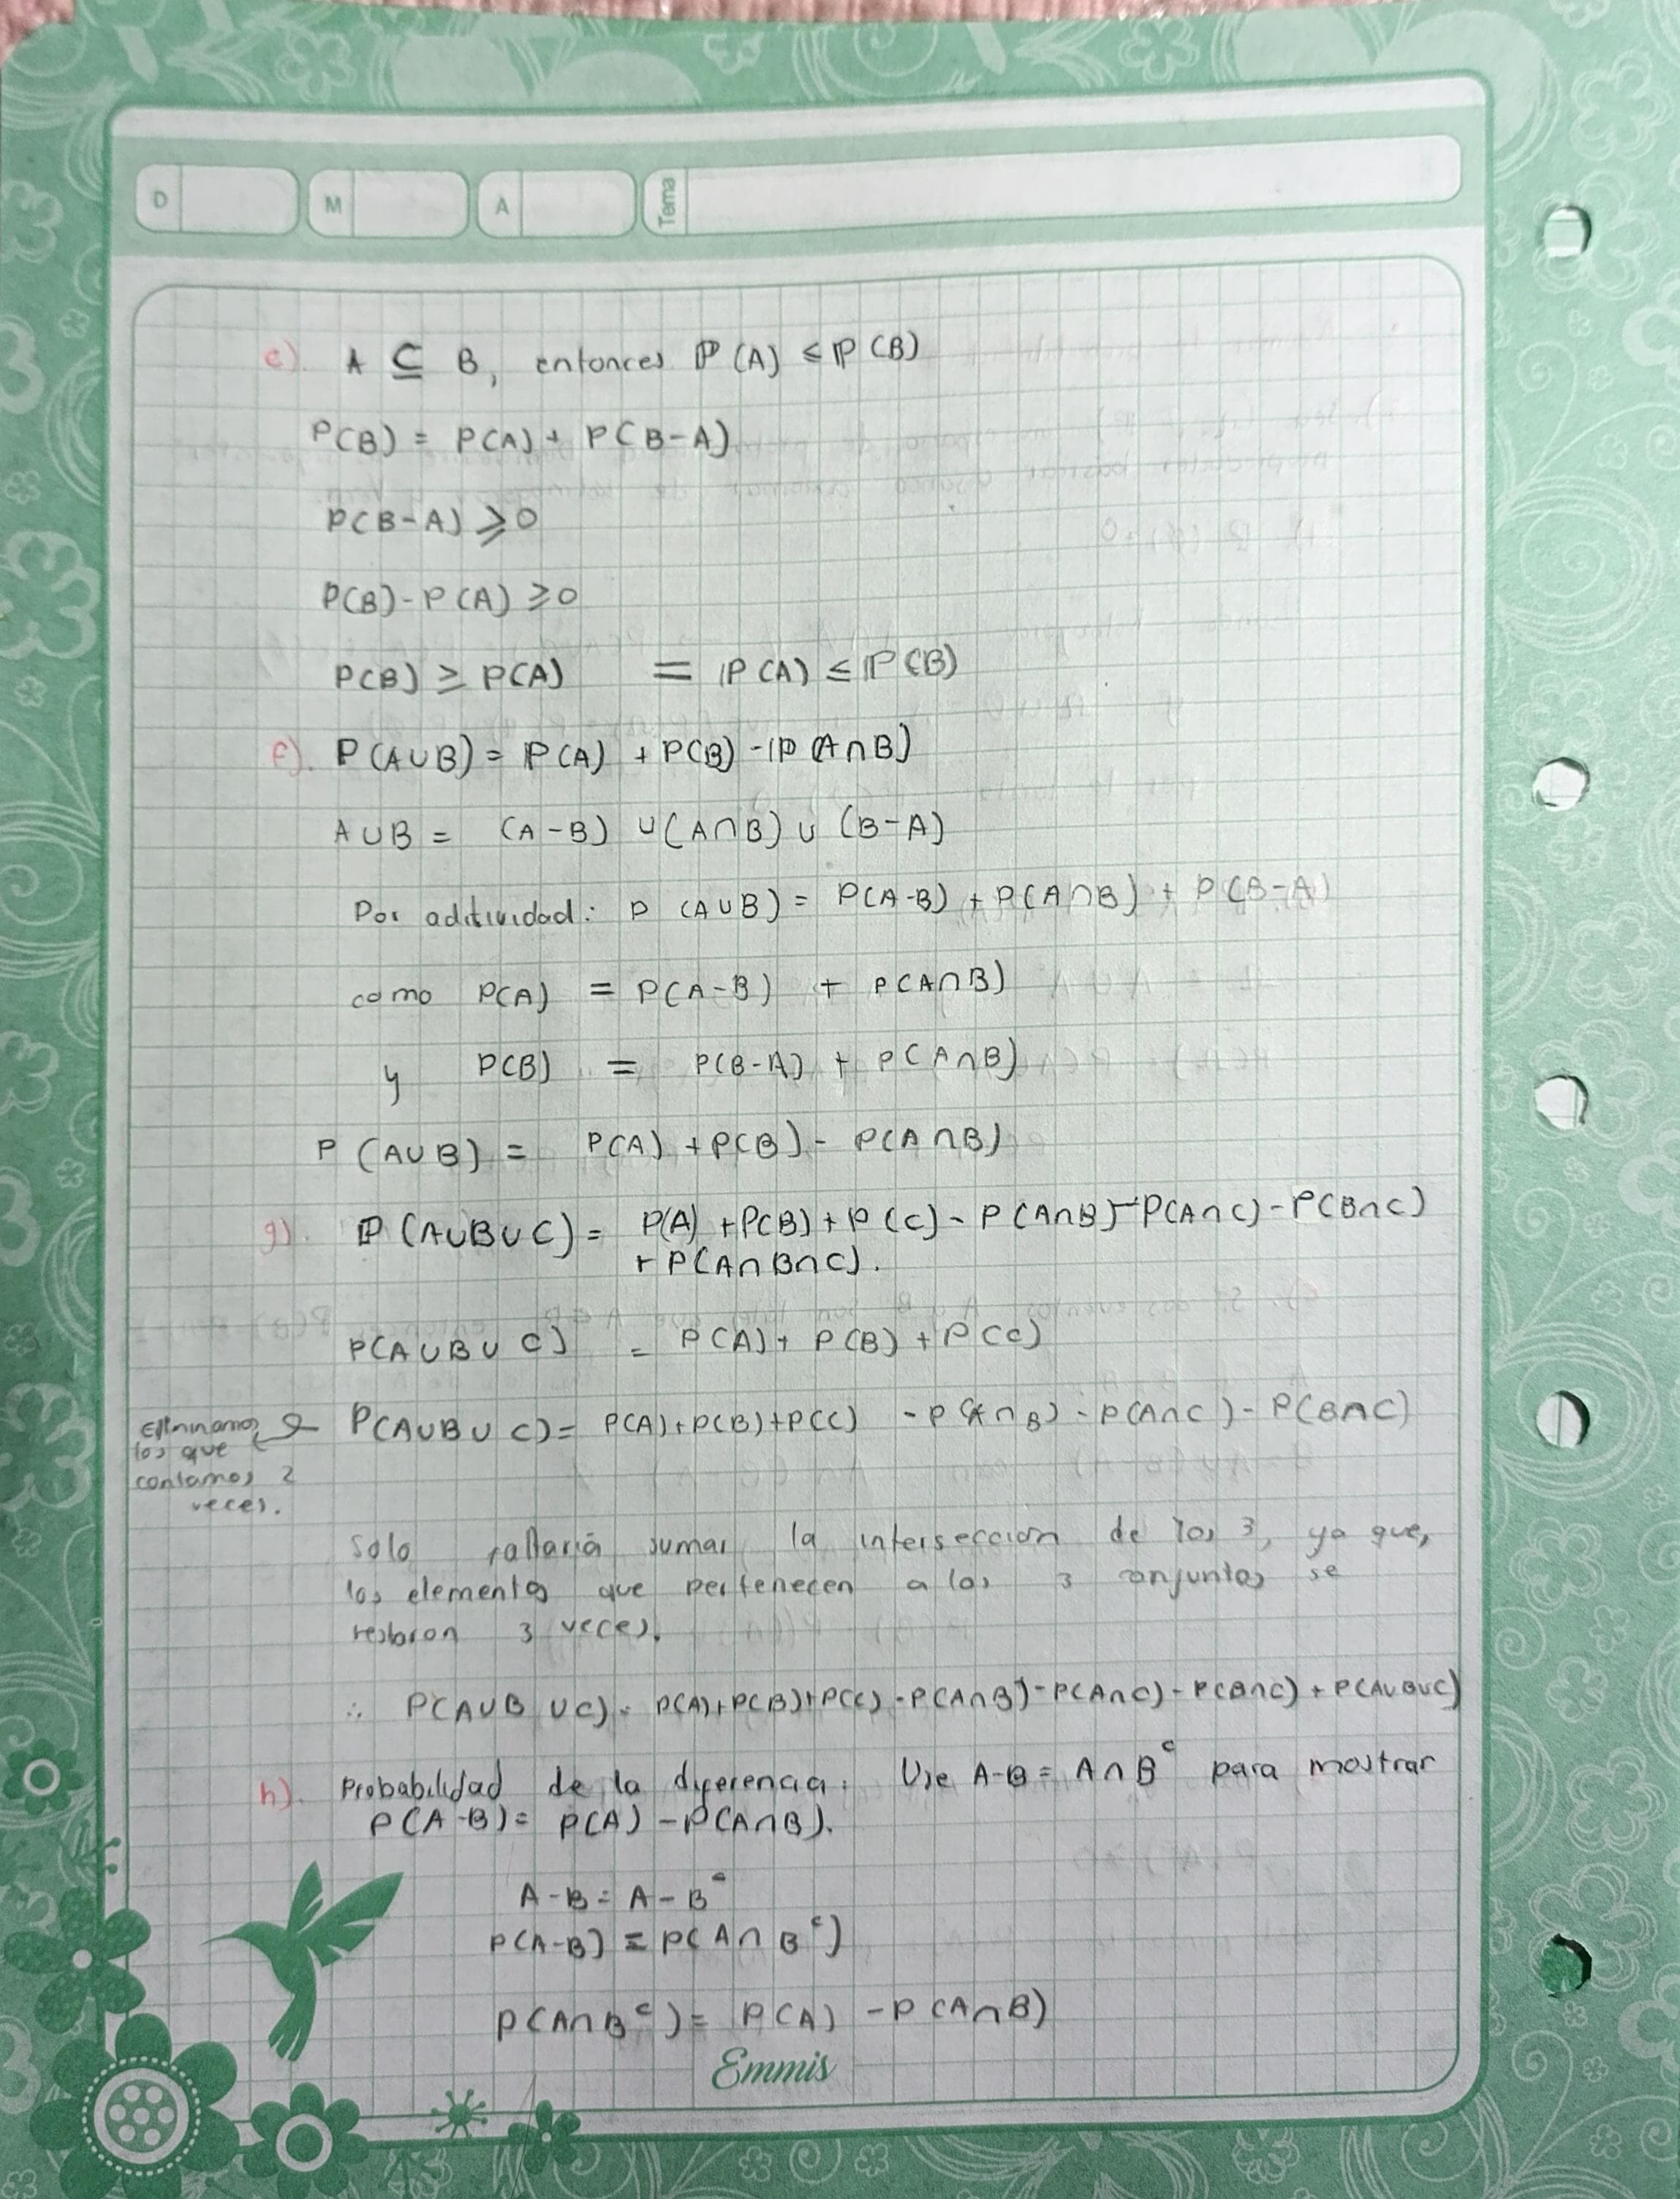 D M A Tema
e). A ⊆ B, entonces ℙ(A) ≤ ℙ(B)
P(B) = P(A) + P(B-A)
P(B-A) ≥ 0
P(B) - P(A) ≥ 0
P(B) ≥ P(A) = ℙ(A) ≤ ℙ(B)
f). P(A∪B) = P(A) + P(B) - ℙ(A∩B)
A∪B = (A-B) ∪ (A∩B) ∪ (B-A)
Por aditividad: P(A∪B) = P(A-B) + P(A∩B) + P(B-A)
como P(A) = P(A-B) + P(A∩B)
y P(B) = P(B-A) + P(A∩B)
P(A∪B) = P(A) + P(B) - P(A∩B)
g). ℙ(A∪B∪C) = P(A) + P(B) + P(C) - P(A∩B) - P(A∩C) - P(B∩C)
+ P(A∩B∩C).
P(A∪B∪C) = P(A) + P(B) + P(C)
P(A∪B∪C) = P(A) + P(B) + P(C) - P(A∩B) - P(A∩C) - P(B∩C)
Eliminamos
los que
contamos 2
veces.
Solo faltaria sumar la interseccion de los 3, ya que,
los elementos que pertenecen a los 3 conjuntos se
restaron 3 veces.
∴ P(A∪B∪C) = P(A) + P(B) + P(C) - P(A∩B) - P(A∩C) - P(B∩C) + P(A∪B∪C)
h). Probabilidad de la diferencia. Use A-B = A∩Bᶜ para mostrar
P(A-B) = P(A) - P(A∩B).
A-B = A-Bᶜ
P(A-B) = P(A∩Bᶜ)
P(A∩Bᶜ) = P(A) - P(A∩B)
Emmis